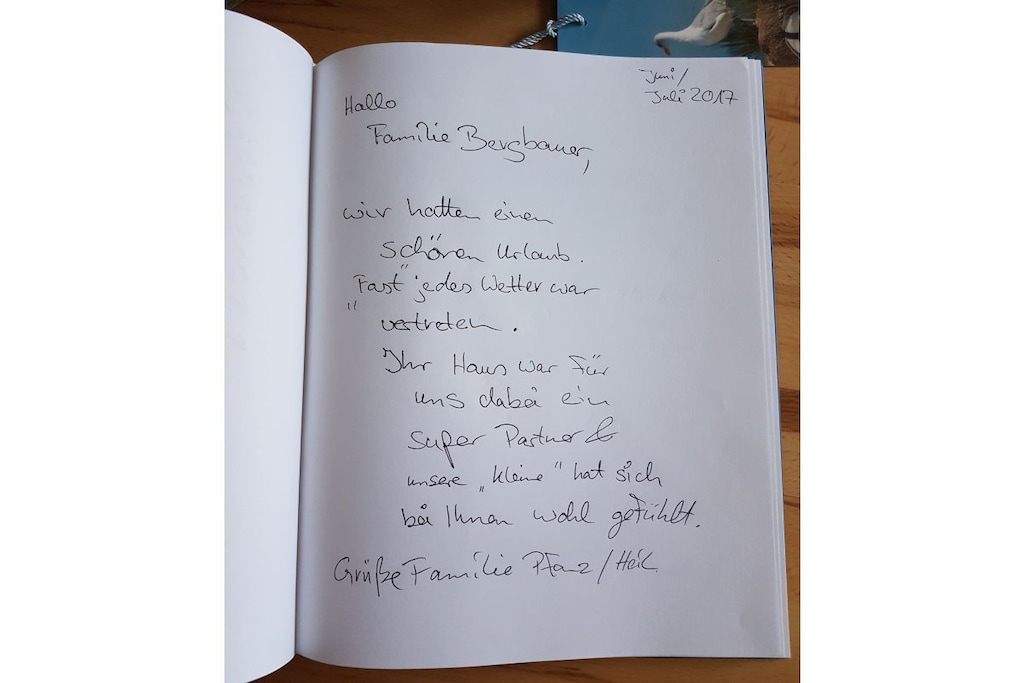 Juni/
Juli 2017
Hallo
Familie Bergbauer,
wir hatten einen
schönen Urlaub.
"Fast" jedes Wetter war
vertreten.
Ihr Haus war für
uns dabei ein
super Partner &
unsere „Kleine" hat sich
bei Ihnen wohl gefühlt.
Grüße Familie Pfanz/Heil